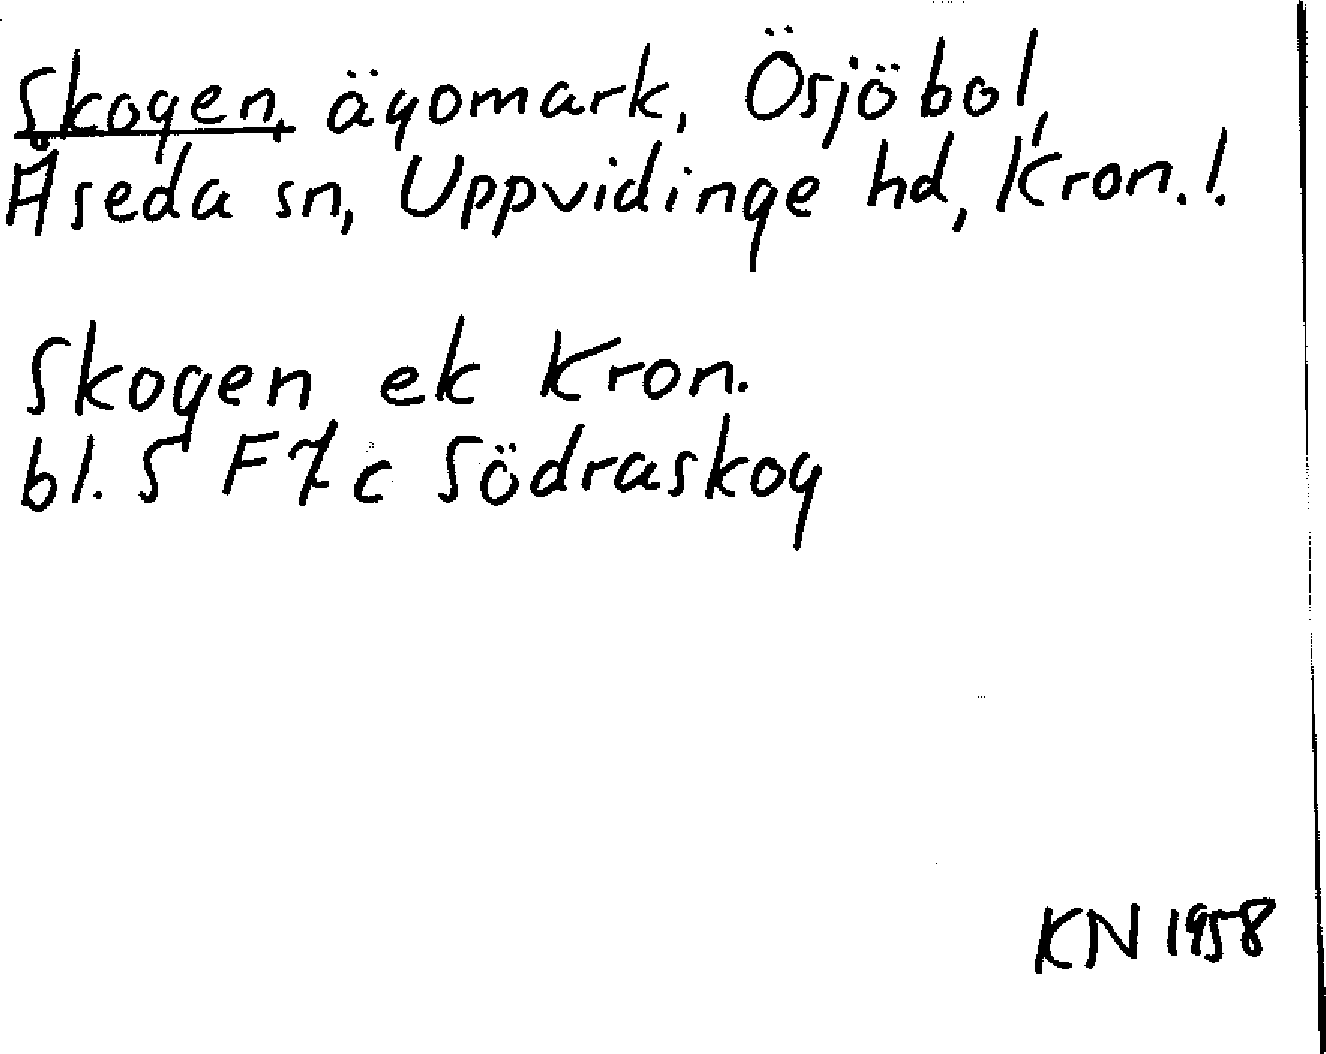 Skogen, ägomark, Ösjöbol,
Åseda sn, Uppvidinge hd, Kron.!.
Skogen ek Kron.
bl. 5 F7c Södraskog
KN 1958